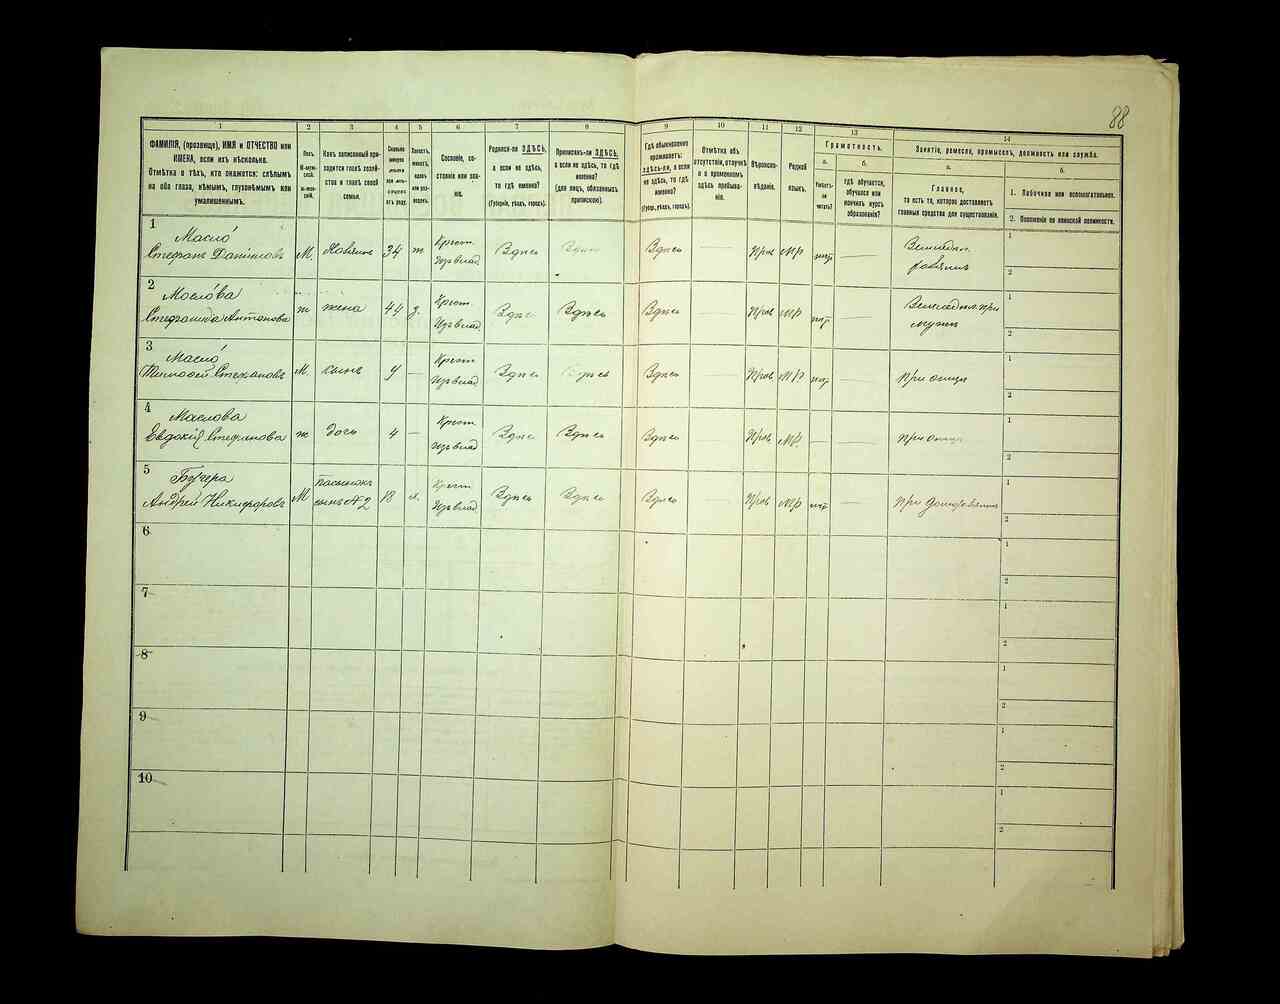 88
1
2
3
4
5
6
7
8
9
10
11
12
13
14
ФАМИЛІЯ, (прозвище), ИМЯ и ОТЧЕСТВО или
ИМЕНА, если ихъ нѣсколько.
Отмѣтка о тѣхъ, кто окажется: слѣпымъ
на оба глаза, нѣмымъ, глухонѣмымъ или
умалишеннымъ.
Полъ.
М-муж-
ской.
Ж-жен-
скій.
Какъ записанный при-
ходится главѣ хозяй-
ства и главѣ своей
семьи.
Сколько
минуло
лѣтъ
отъ роду.
Холостъ,
женатъ,
вдовъ
или раз-
веденъ.
Сословіе, со-
стояніе или зва-
ніе.
Родился-ли ЗДѢСЬ,
а если не здѣсь,
то гдѣ именно?
(Губернія, уѣздъ, городъ).
Приписанъ-ли ЗДѢСЬ,
а если не здѣсь, то гдѣ
именно?
(для лицъ, обязанныхъ
припискою).
Гдѣ обыкновенно
проживаетъ:
здѣсь-ли, а если
не здѣсь, то гдѣ
именно?
(Губерн., уѣздъ, городъ).
Отмѣтка объ
отсутствіи, отлучкѣ
и о временномъ
здѣсь пребыва-
ніи.
Вѣроиспо-
вѣданіе.
Родной
языкъ.
Грамотность.
а.
Умѣетъ-
ли
читать?
б.
гдѣ обучается,
обучался или
кончилъ курсъ
образованія?
Занятіе, ремесло, промыселъ, должность или служба.
а.
Главное,
то есть то, которое доставляетъ
главныя средства для существованія.
б.
1. Побочное или вспомогательное.
2. Положеніе по воинской повинности.
1
Масло
Стефанъ Даниловъ
М. Хозяинъ 34 ж Крест. изъ влад. Здѣсь Здѣсь Здѣсь Прав МР нѣт
Земледѣл.
хозяинъ
1
2
2
Маслова
Стефанида Антонова
ж жена 44 з. Крест. изъ влад. Здѣсь Здѣсь Здѣсь Прав МР нѣт
Земледѣл. при
мужѣ
1
2
3
Масло
Тимофей Стефановъ
М сынъ 9 — Крест. изъ влад. Здѣсь Здѣсь Здѣсь Прав МР нѣт
При отцѣ
1
2
4
Маслова
Евдокія Стефанова
ж дочь 4 — Крест. изъ влад. Здѣсь Здѣсь Здѣсь Прав МР —
при отцѣ
1
2
5
Андрей Никифоровъ
М пасынокъ 18 х. Крест. изъ влад. Здѣсь Здѣсь Здѣсь Прав МР нѣт
1
2
6
1
2
7
1
2
8
1
2
9
1
2
10
1
2